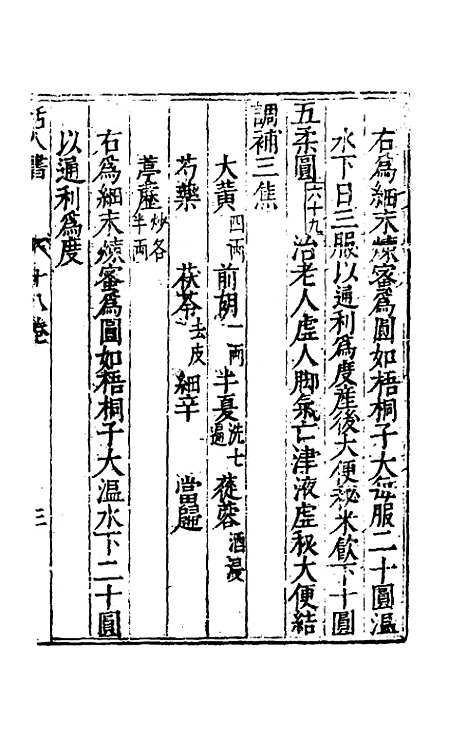 右爲細末煉蜜爲圓如梧桐子大每服二十圓溫
水下日三服以通利爲度產後大便秘米飲下十圓
五柔圓 六十九 治老人虛人脚氣亡津液虛秘大便結
調補三焦
大黄 四兩 前胡 一兩 半夏 洗七遍 蓯蓉 酒浸
芍藥 茯苓 去皮 細辛 當歸
葶藶 炒各半兩
右爲細末煉蜜爲圓如梧桐子大溫水下二十圓
以通利爲度
活人書 十八卷 三